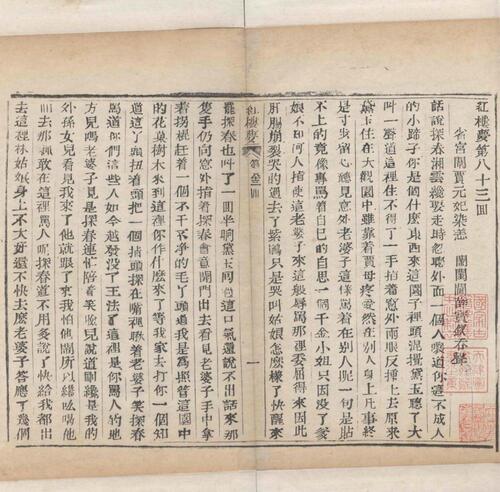 紅樓夢第八十三回
省宮闈賈元妃染恙　鬧閨閫薛寶釵吞聲
話說探春湘雲纔要走時忽聽外面一個人嚷道你這不成人
的小蹄子你是個什麼東西來這園子裡頭混攪黛玉聽了大
叫一聲道這裡住不得了一手指着窓外兩眼反揷上去原來
黛玉住在大觀園中雖靠着賈母疼愛然在別人身上凡事終
是寸步留心聽見窓外老婆子這樣罵着在別人呢一句是貼
不上的竟像專罵着自己的自思一個千金小姐只因没了爹
娘不知何人指使這老婆子來這般辱罵那裡委屈得來因此
肝腸崩裂哭的過去了紫鵑只是哭叫姑娘怎麼樣了快醒來
紅樓夢　第八十三回　一
罷探春也叫了一囬半晌黛玉囬過這口氣還說不出話來那
隻手仍向窓外指着探春會意開門出去看見老婆子手中拿
着拐棍赶着一個不干不凈的毛丫頭道我是爲照管這園中
的花菓樹木來到這裡你作什麼來了等我家去打你一個知
道這丫頭扭着頭把一個指頭探在嘴裡瞅着老婆子笑探春
罵道你們這些人如今越發没了王法了這裡是你罵人的地
方兒嗎老婆子見是探春連忙陪着笑臉兒說道剛纔是我的
外孫女兒看見我來了他就跟了來我怕他鬧所以纔吆喝他
囬去那裡敢在這裡罵人呢探春道不用多說了快給我都出
去這裡林姑娘身上不大好還不快去麽老婆子答應了幾個